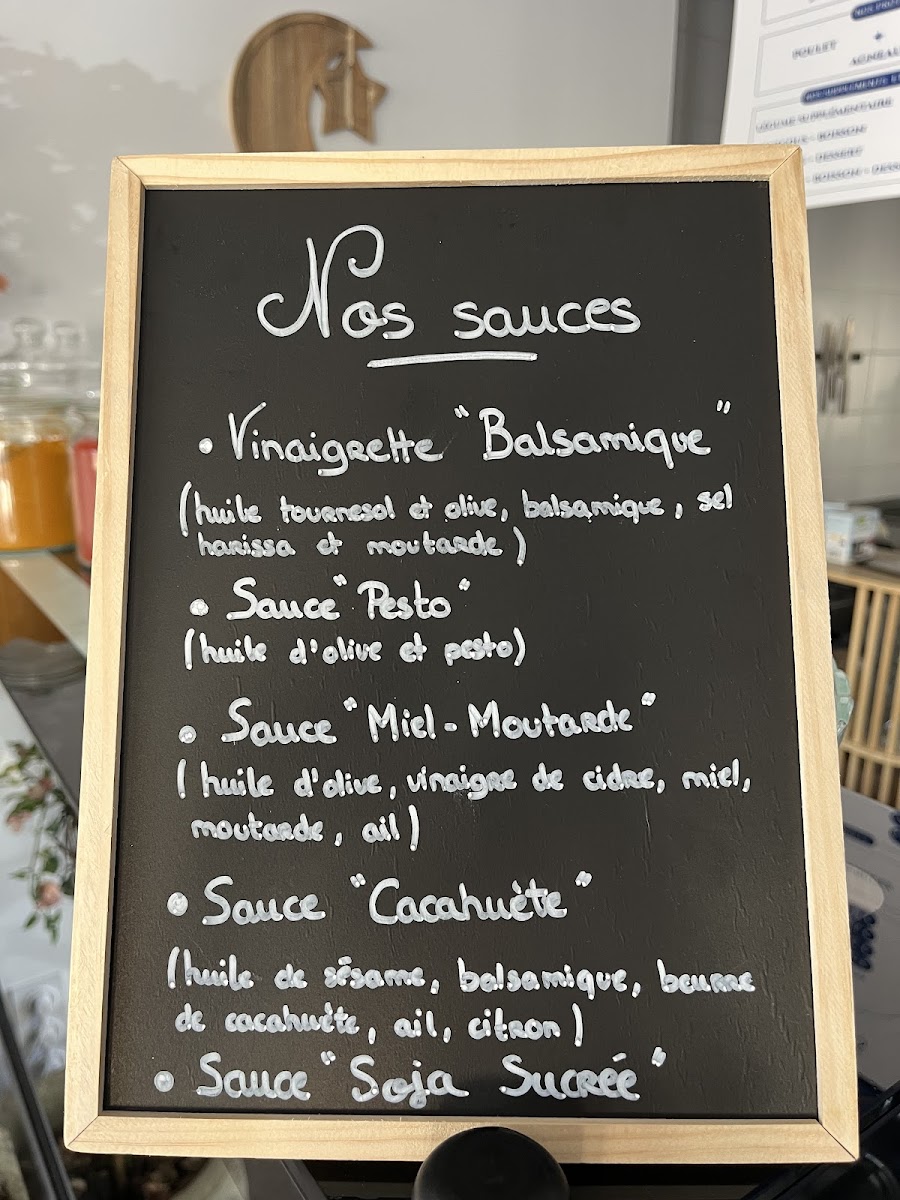 POULET
LÉGUME SUPPLÉMENTAIRE
BOISSON
DESSERT
Nos sauces
• Vinaigrette "Balsamique"
(huile tournesol et olive, balsamique, sel
harissa et moutarde)
• Sauce "Pesto"
(huile d'olive et pesto)
• Sauce "Miel-Moutarde"
(huile d'olive, vinaigre de cidre, miel,
moutarde, ail)
• Sauce "Cacahuète"
(huile de sésame, balsamique, beurre
de cacahuète, ail, citron)
• Sauce "Soja Sucrée"